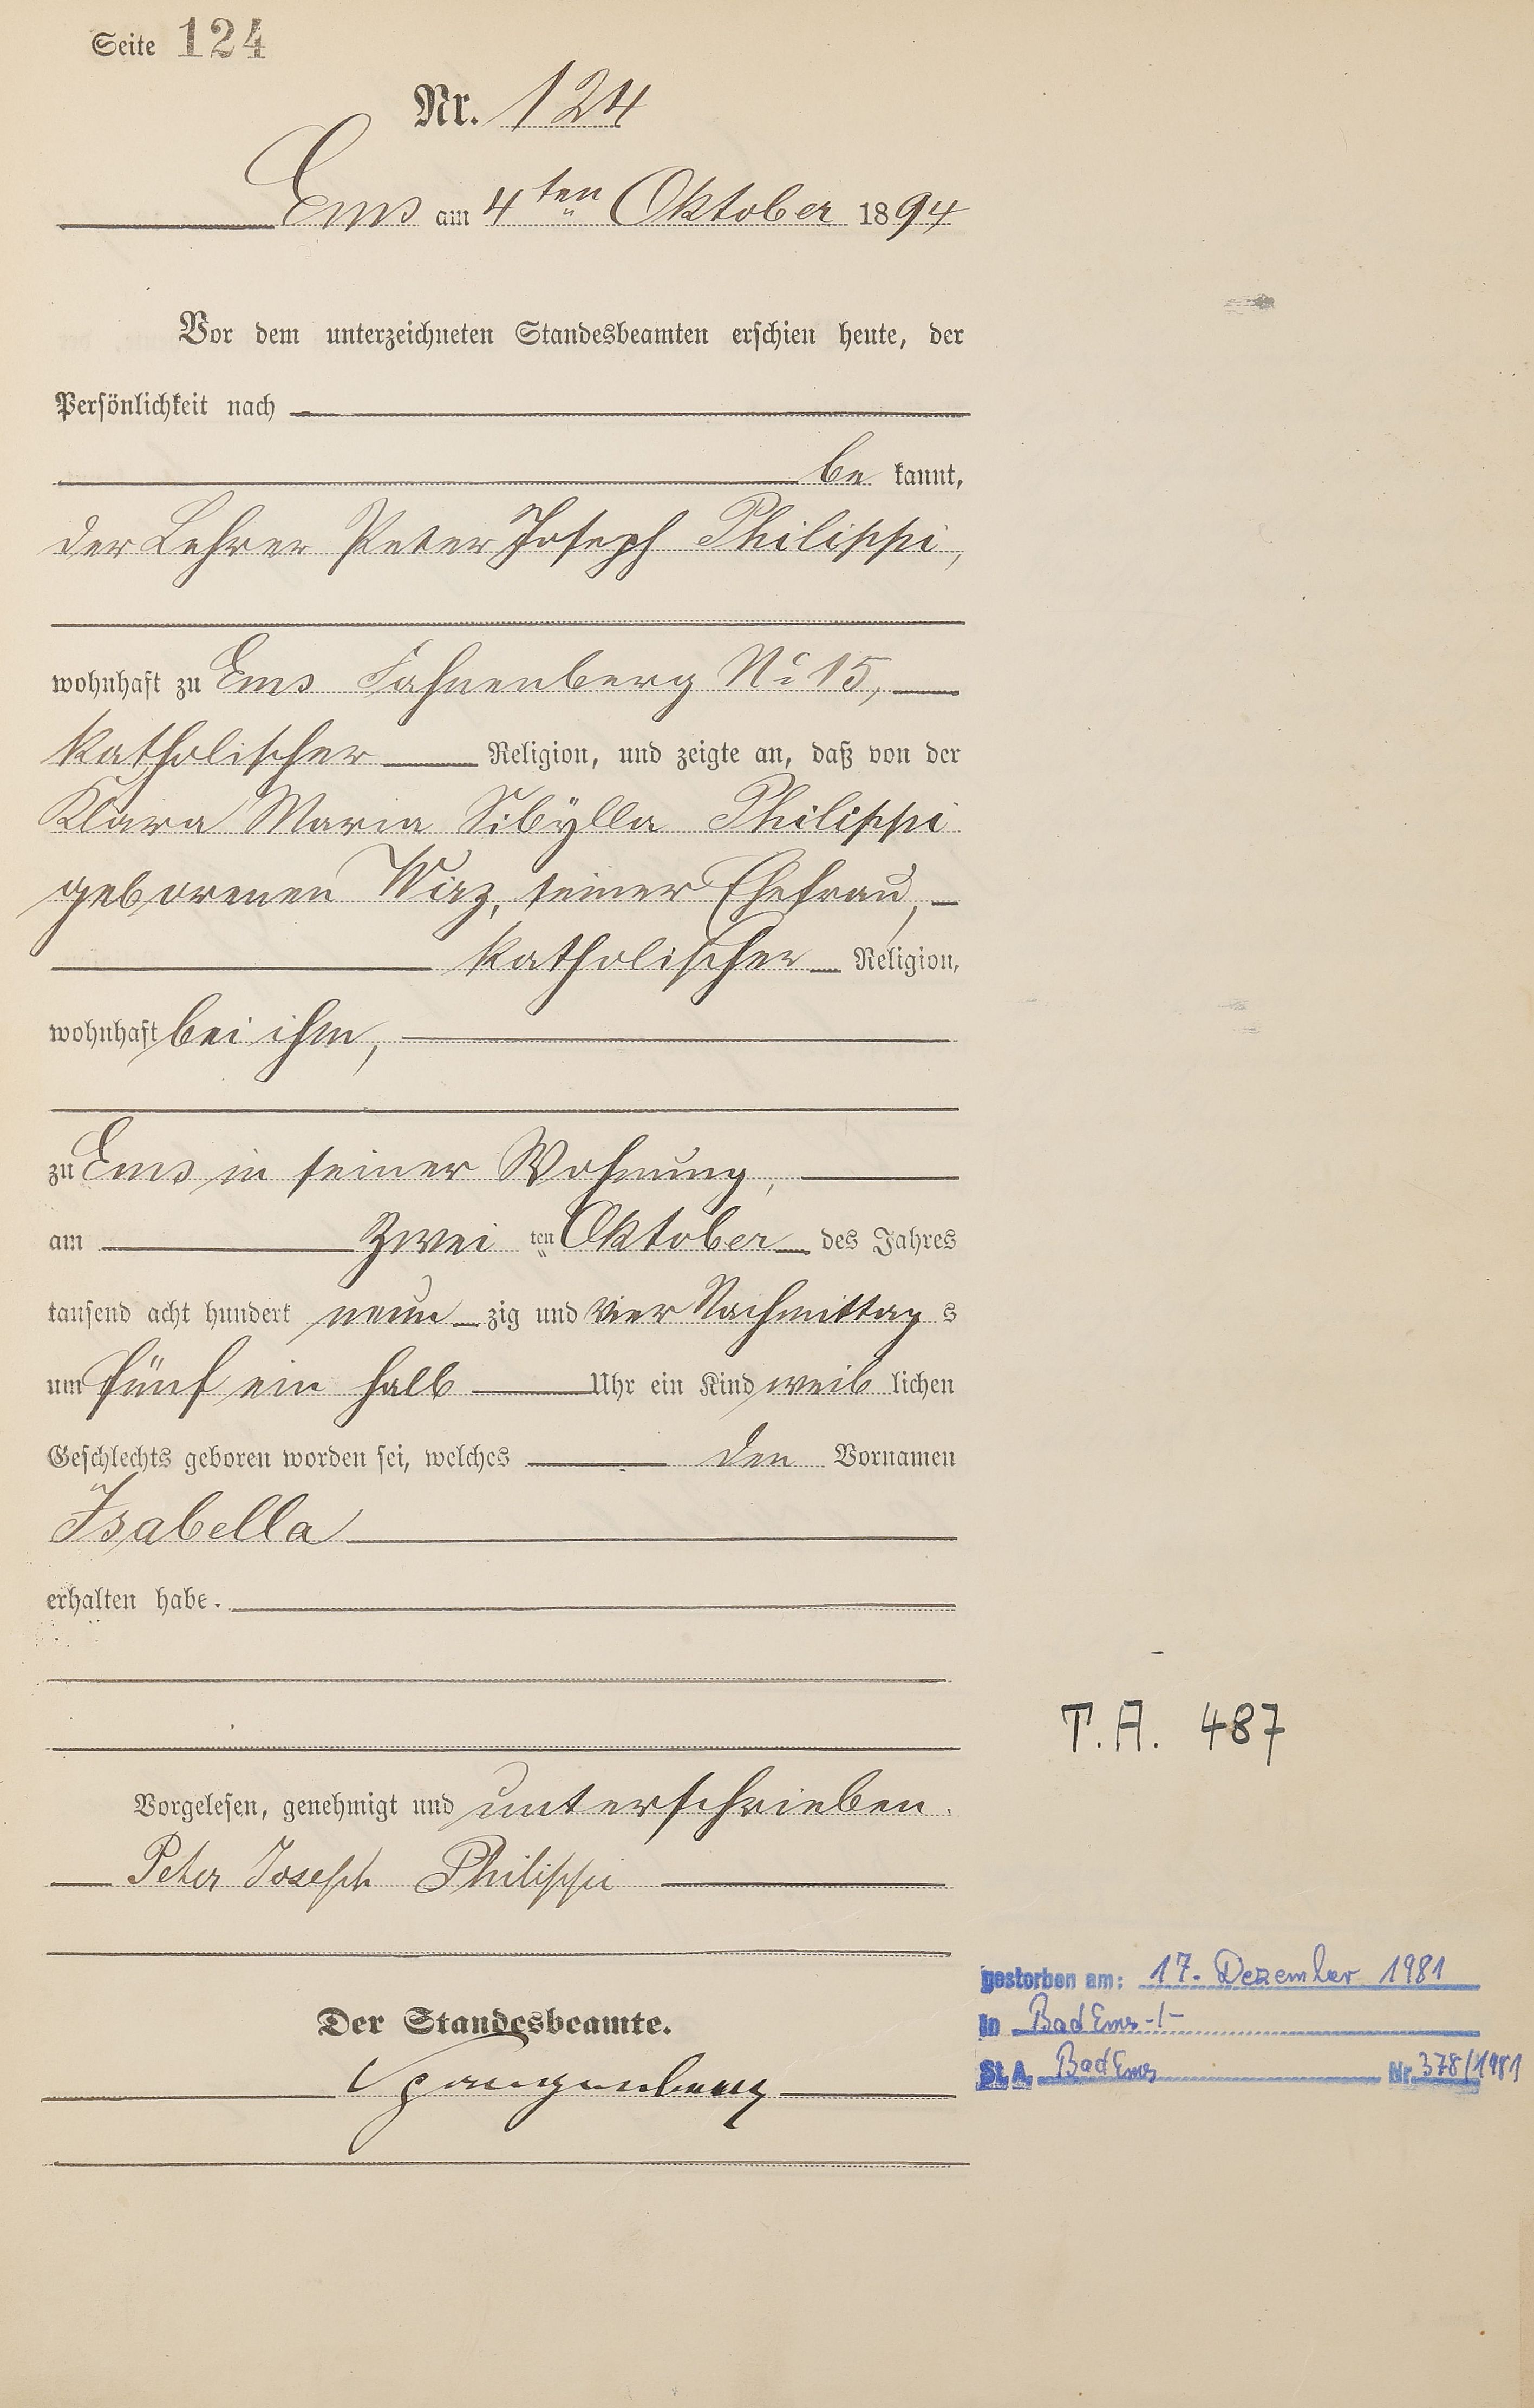 Seite 124
Nr. 124
Ems am 4ten Oktober 1894
Vor dem unterzeichneten Standesbeamten erschien heute, der
Persönlichkeit nach
be kannt,
der Lehrer Peter Joseph Philippi,
wohnhaft zu Ems Fahnenberg No 15,
katholischer Religion, und zeigte an, daß von der
Klara Maria Sibÿlla Philippi
geborenen Wirz, seiner Ehefrau,
katholischer Religion,
wohnhaft bei ihm,
zu Ems in seiner Wohnung,
am zwei ten Oktober des Jahres
tausend acht hundert neun zig und vier Nachmittag s
um fünf ein halb Uhr ein Kind weib lichen
Geschlechts geboren worden sei, welches den Vornamen
Isabella
erhalten habe.
T.A. 487
Vorgelesen, genehmigt und unterschrieben.
Peter Joseph Philippi
Der Standesbeamte.
Spangenberg
gestorben am: 17. Dezember 1981
in Bad Ems -/-
St. A. Bad Ems Nr. 378/1981